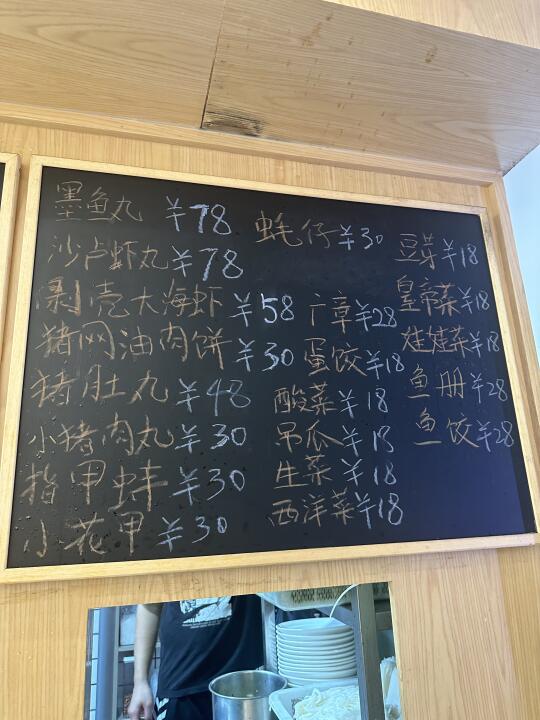 墨鱼丸 ¥78
沙卢虾丸 ¥78
剥壳大海虾 ¥58
猪网油肉饼 ¥30
猪肚丸 ¥48
小猪肉丸 ¥30
指甲蚌 ¥30
小花甲 ¥30
蚝仔 ¥30
广章 ¥28
蛋饺 ¥18
酸菜 ¥18
吊瓜 ¥18
生菜 ¥18
西洋菜 ¥18
豆芽 ¥18
皇帝菜 ¥18
娃娃菜 ¥18
鱼册 ¥28
鱼饺 ¥28